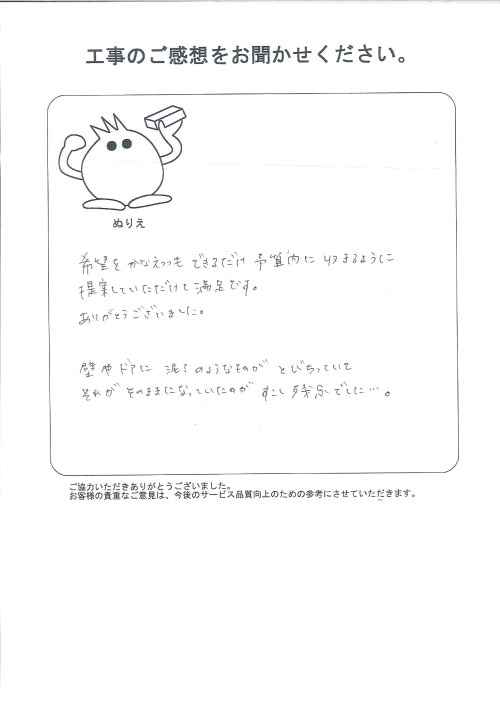 工事のご感想をお聞かせください。
ぬりえ
希望をかなえつつも できるだけ 予算内に 収まるように
提案していただけて満足です。
ありがとうございました。
壁やドアに 泥のようなものが とびちっていて
それが そのままになっていたのが すこし残念でした…。
ご協力いただきありがとうございました。
お客様の貴重なご意見は、今後のサービス品質向上のための参考にさせていただきます。